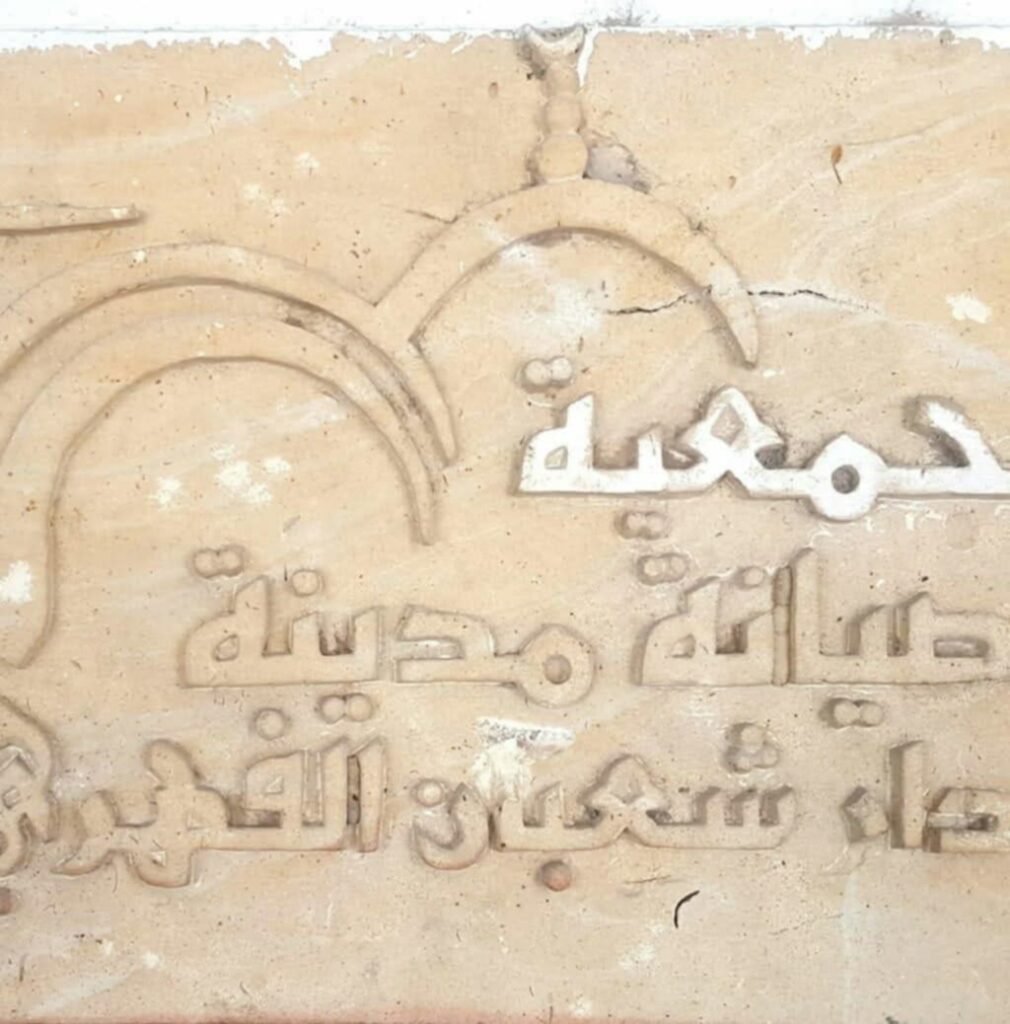 جمعية
صيانة مدينة
شعبان الفهري